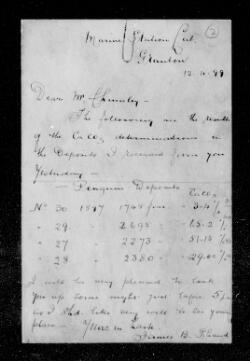 2
Marine Station Cut
Granton
12.4.89
Dear Mr Chumley -
The following are the results
of the CaCO3 determinations in
the Deposits I received from you
Yesterday -
- Penguin Deposits
CaCO3
No 30 1897 1748 fms - 3.4 %
" 29 - 2695 -
" 27 - 2273 -
" 28 - 2380 -
I will be very pleased to look
you up some night
and shd like very well to see your
place. - Yours in haste
James B.